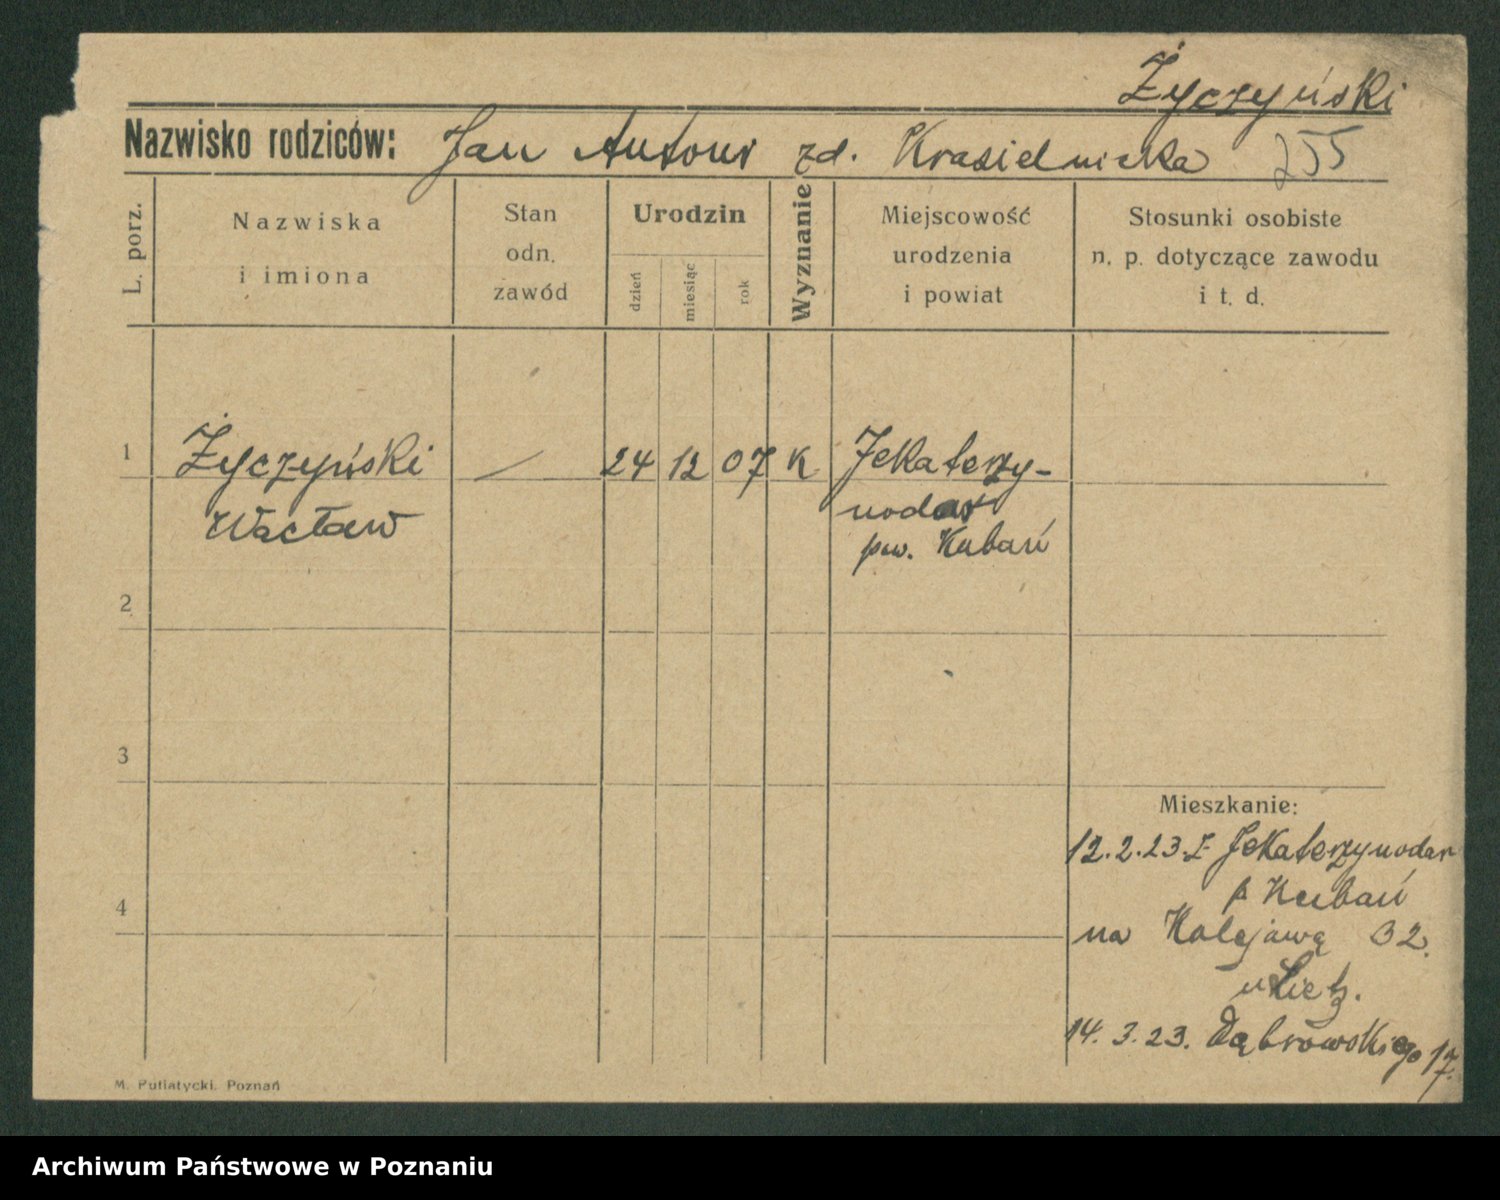 Życzyński
Nazwisko rodziców: Jan Antoni zd. Krasielnicka 255
L. porz.
Nazwiska
i imiona
Stan
odn.
zawód
Urodzin
dzień
miesiąc
rok
Wyznanie
Miejscowość
urodzenia
i powiat
Stosunki osobiste
n. p. dotyczące zawodu
i t. d.
1 Życzyński — 24 12 07 K Jekaterzy-
Wacław nodar
pw. Kubań
2
3
Mieszkanie:
12.2.23. z Jekaterzynodar
p Kubań
4
na Kolejawą 32.
u Lietz.
14. 3. 23. Dąbrowskiego 17.
M. Putiatycki. Poznań
Archiwum Państwowe w Poznaniu